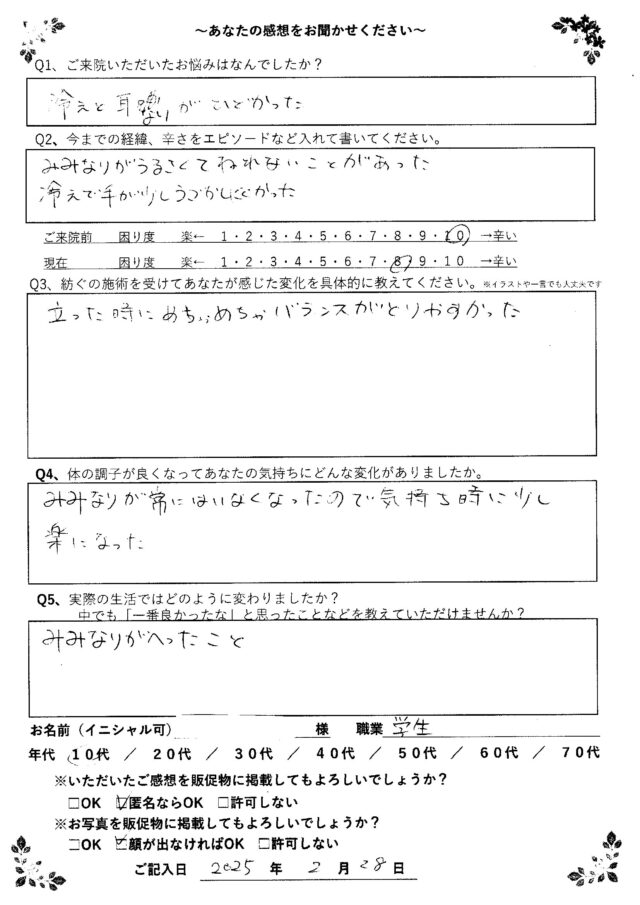 ～あなたの感想をお聞かせください～
Q1、ご来院いただいたお悩みはなんでしたか？
冷えと耳鳴りがひどかった
なり
Q2、今までの経緯、辛さをエピソードなど入れて書いてください。
みみなりがうるさくてねれないことがあった
冷えで手が少しうごかしにくかった
ご来院前 困り度 楽← 1・2・3・4・5・6・7・8・9・10 →辛い
現在 困り度 楽← 1・2・3・4・5・6・7・8・9・10 →辛い
Q3、紡ぐの施術を受けてあなたが感じた変化を具体的に教えてください。※イラストや一言でも大丈夫です
立った時にめちゃめちゃバランスがとりやすかった
Q4、体の調子が良くなってあなたの気持ちにどんな変化がありましたか。
みみなりが常にはいなくなったので気持ち時に少し
楽になった
Q5、実際の生活ではどのように変わりましたか？
中でも「一番良かったな」と思ったことなどを教えていただけませんか？
みみなりがへったこと
お名前（イニシャル可） 様 職業 学生
年代 10代 ／ 20代 ／ 30代 ／ 40代 ／ 50代 ／ 60代 ／ 70代
※いただいたご感想を販促物に掲載してもよろしいでしょうか？
□OK ☑匿名ならOK □許可しない
※お写真を販促物に掲載してもよろしいでしょうか？
□OK ☑顔が出なければOK □許可しない
ご記入日 2025 年 2 月 28 日